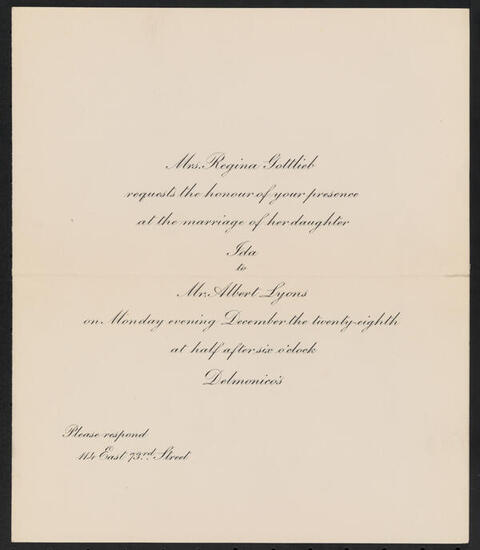 Mrs. Regina Gottlieb
requests the honour of your presence
at the marriage of her daughter
Ida
to
Mr. Albert Lyons
on Monday evening December the twenty-eighth
at half after six o'clock
Delmonico's
Please respond
114 East 73rd. Street